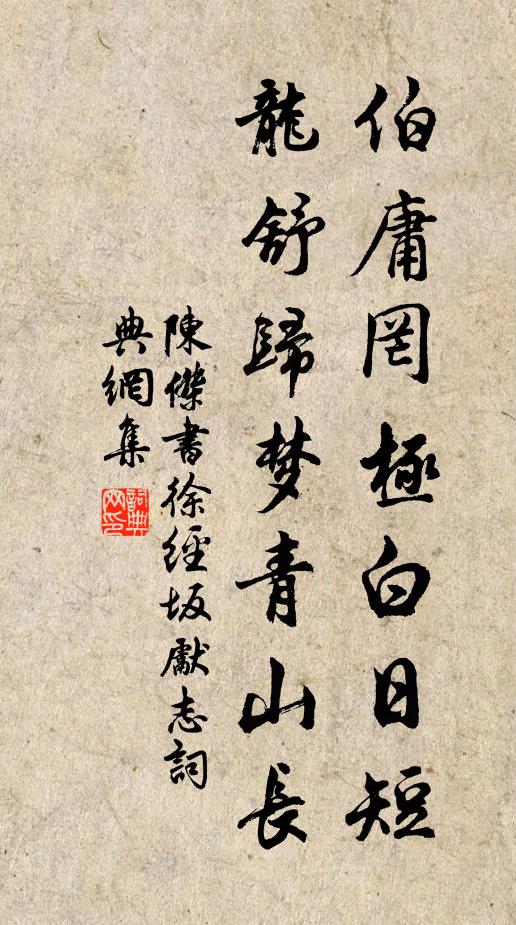 伯庸罔極白日短
龍舒歸梦青山長
陳傑書徐經坂獻志詞
典網集
詞典
网印